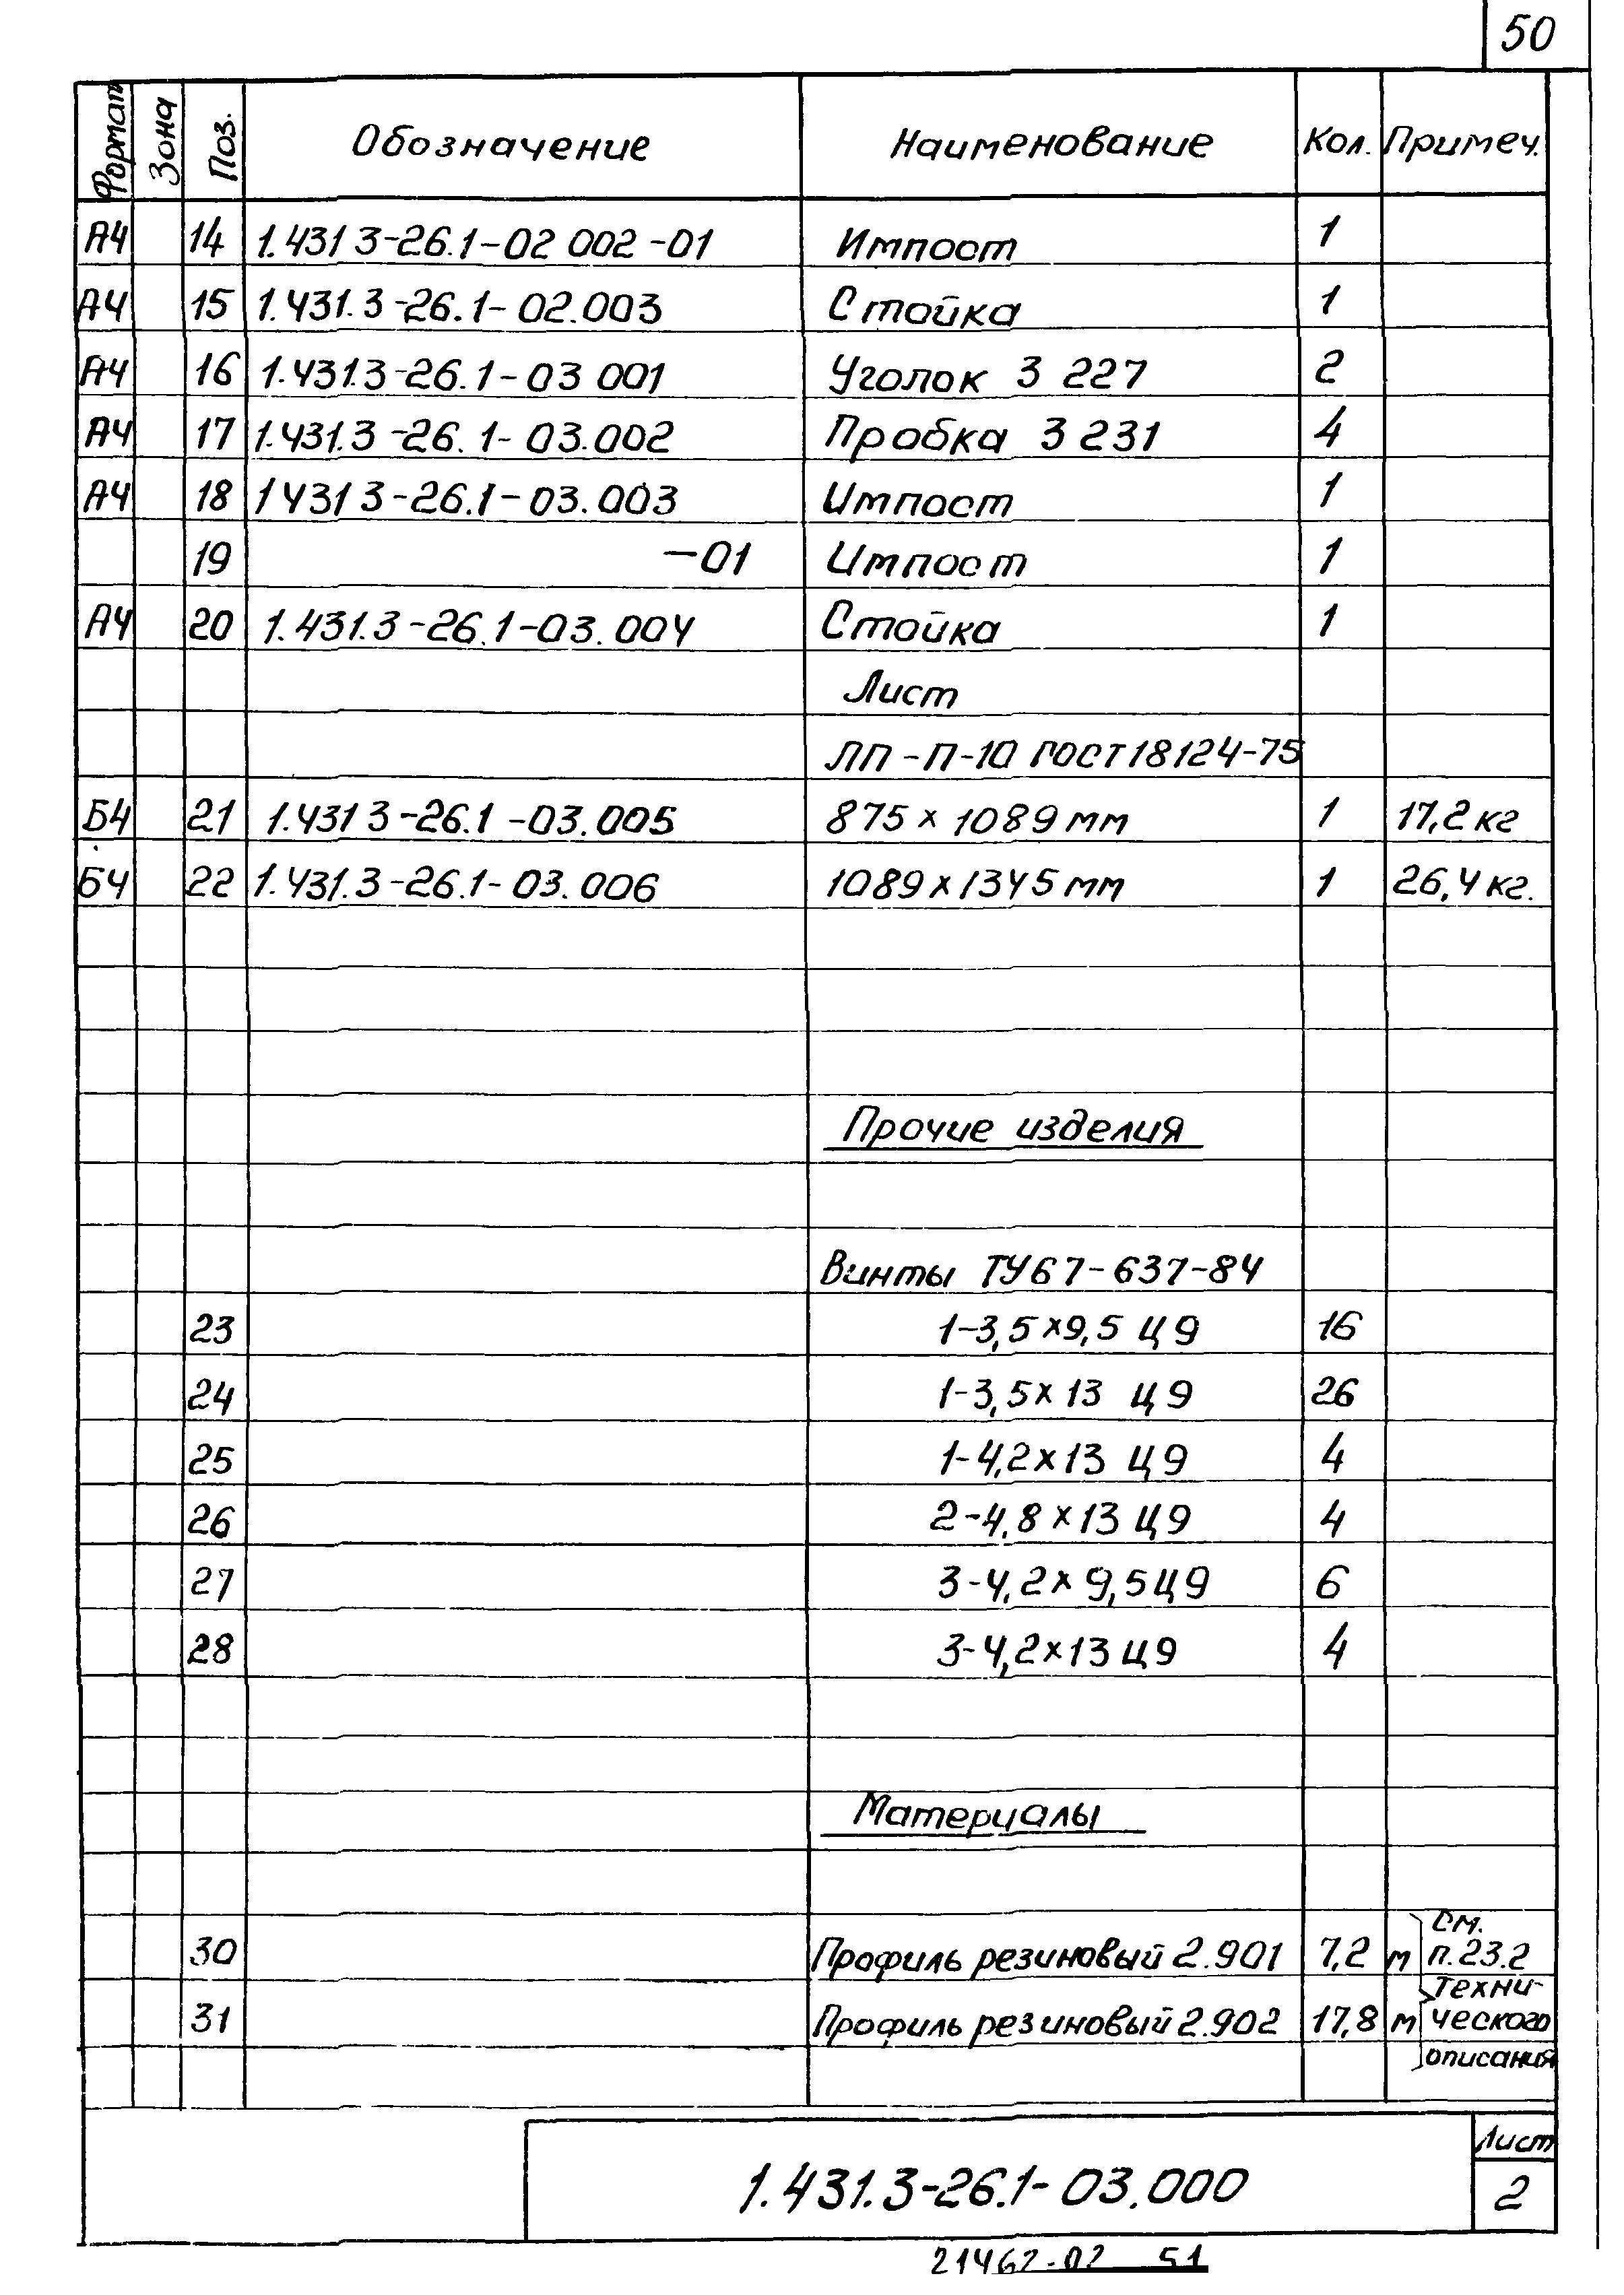 50
Формат Зона Поз. Обозначение Наименование Кол. Примеч.
А4 14 1.431 3-26.1-02 002-01 Импост 1
А4 15 1.431.3-26.1-02.003 Стойка 1
А4 16 1.431.3-26.1-03 001 Уголок 3 227 2
А4 17 1.431.3-26.1-03.002 Пробка 3 231 4
А4 18 1 431 3-26.1-03.003 Импост 1
19 -01 Импост 1
А4 20 1.431.3-26.1-03.004 Стойка 1
Лист
ЛП-П-10 ГОСТ 18124-75
Б4 21 1.431 3-26.1-03.005 875 х 1089 мм 1 17,2 кг
Б4 22 1.431.3-26.1-03.006 1089 х 1345 мм 1 26,4 кг.
Прочие изделия
Винты ТУ67-637-84
23 1-3,5х9,5 Ц9 16
24 1-3,5х13 Ц9 26
25 1-4,2х13 Ц9 4
26 2-4,8х13 Ц9 4
27 3-4,2х9,5Ц9 6
28 3-4,2х13 Ц9 4
Материалы
см.
30 Профиль резиновый 2.901 7,2 м п.23.2
техни-
31 Профиль резиновый 2.902 17,8 м ческого
описания
Лист
1.431.3-26.1-03.000 2
21462-02 51